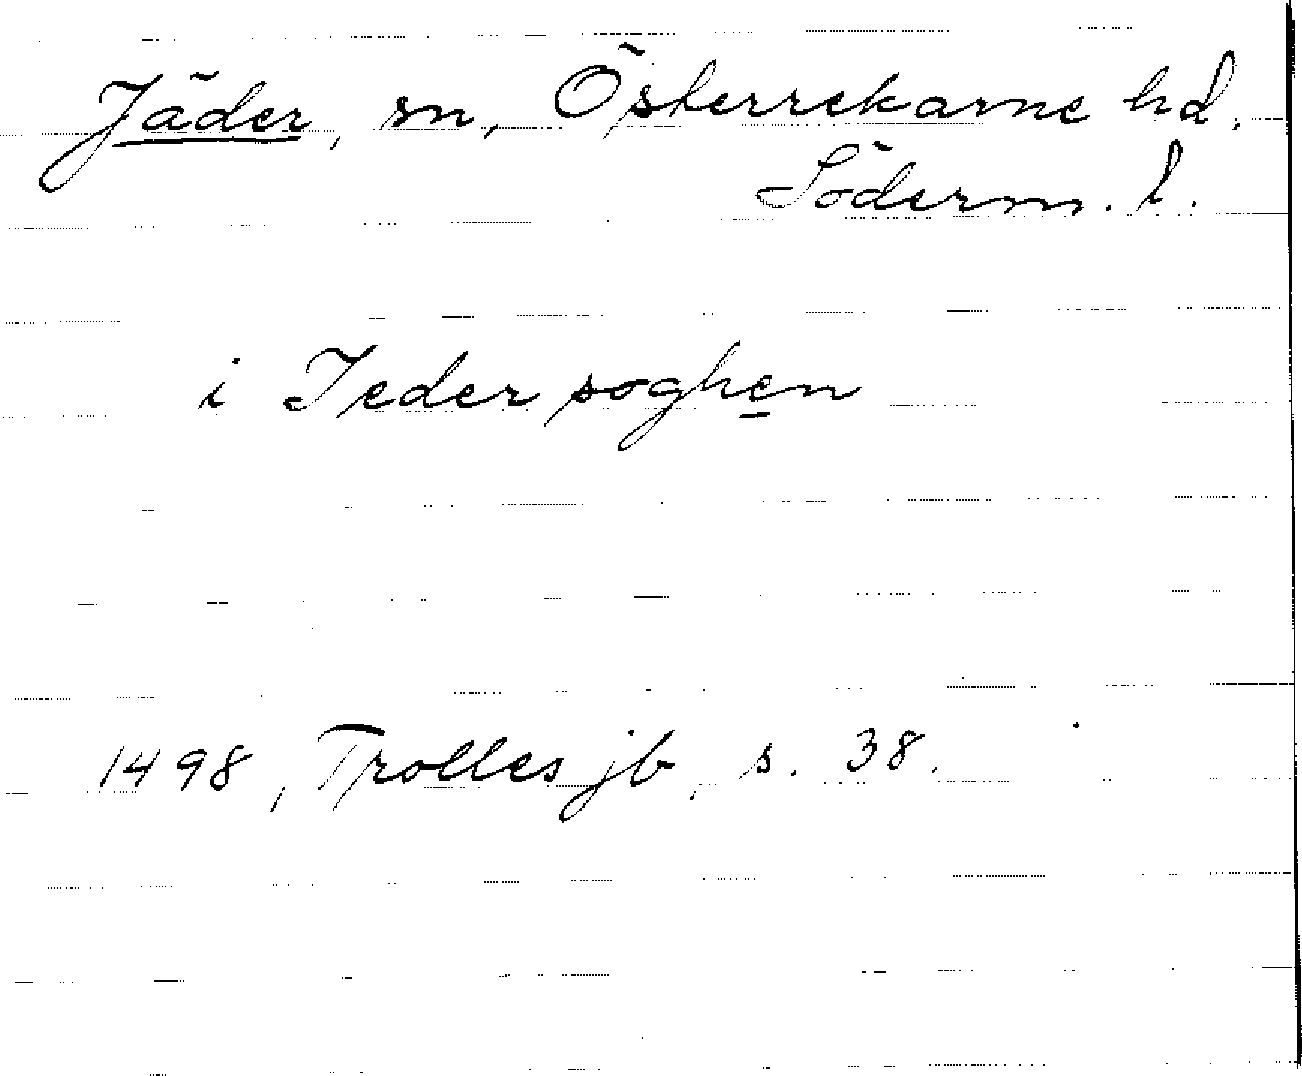 Jäder, sn, Österrekarne hd.
Söderm. l.
i Jeder soghen
1498, Trolles jb, s. 38.